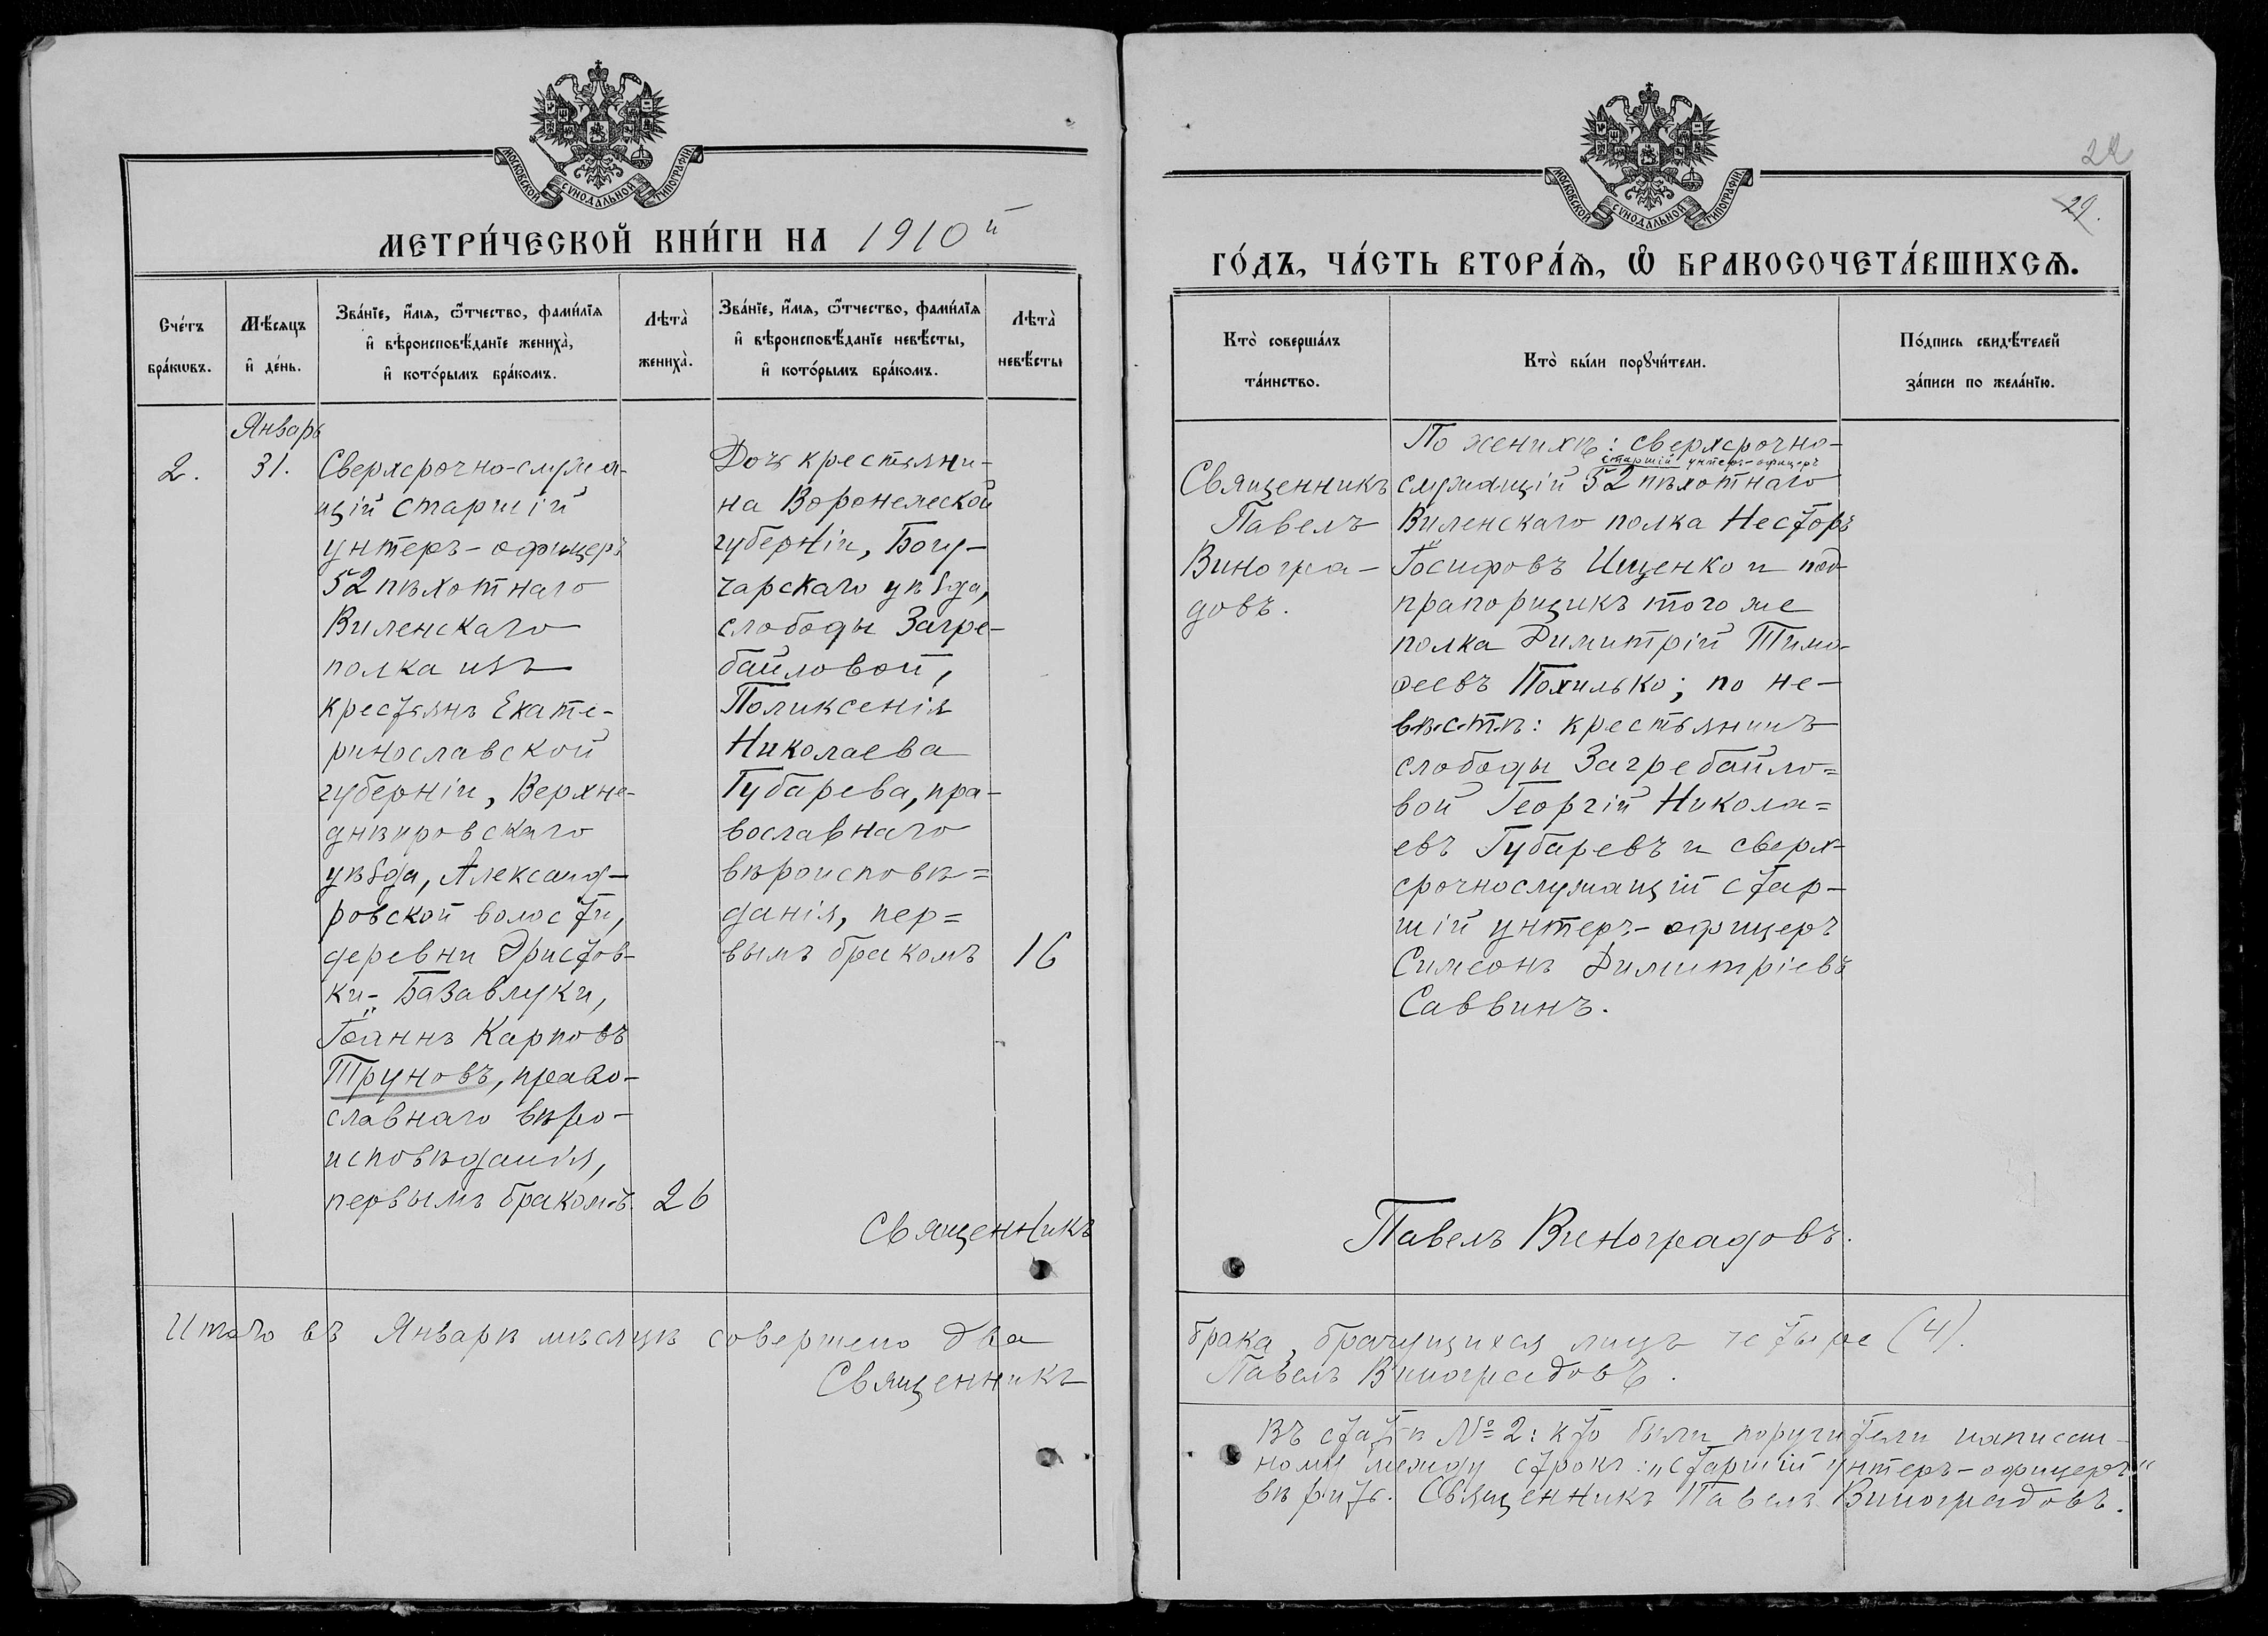 МОСКОВСКОЙ СѴНОДАЛЬНОЙ ТИПОГРАФІИ.
МЕТРИ́ЧЕСКОЙ КНИ́ГИ НА 1910й
Сче́тъ
бра́кѡвъ.
Мѣ́сяцъ
и҆ де́нь.
Зва́нїе, и҆́мѧ, ѻ҆́тчество, фами́лїѧ
и҆ вѣроисповѣ́данїе жениха̀,
и҆ кото́рымъ бра́комъ.
Лѣта̀
жениха̀.
Зва́нїе, и҆́мѧ, ѻ҆́тчество, фами́лїѧ
и҆ вѣроисповѣ́данїе невѣ́сты,
и҆ кото́рымъ бра́комъ.
Лѣта̀
невѣ́сты
Январь
2.
31.
Сверхсрочно-служа-
щій старшій
унтеръ-офицеръ
52 пѣхотнаго
Виленскаго
полка изъ
крестьянъ Екате-
ринославской
губерніи, Верхне-
днѣпровскаго
уѣзда, Александ-
ровской волости,
деревни Эристов-
ки-Базавлуки,
Іоаннъ Карповъ
Труновъ, право-
славнаго вѣро-
исповѣданія,
первымъ бракомъ.
26
Дочь крестьяни-
на Воронежской
губерніи, Богу-
чарскаго уѣзда,
слободы Загре-
байловой,
Поликсенія
Николаева
Губарева, пра-
вославнаго
вѣроисповѣ=
данія, пер=
вымъ бракомъ
16
Священникъ
Итого въ Январѣ мѣсяцѣ совершено два
Священникъ
МОСКОВСКОЙ СѴНОДАЛЬНОЙ ТИПОГРАФІИ.
22
29.
ГО́ДЪ, ЧА́СТЬ ВТОРА́Ѧ, Ѡ҆ БРАКОСОЧЕТА́ВШИХСѦ.
Кто̀ соверша́лъ
та́инство.
Кто̀ бы́ли порꙋчи́тели.
По́дпись свидѣ́телей
за́писи по жела́нїю.
Священникъ
Павелъ
Виногра-
довъ.
По женихѣ: сверхсрочно-
старшій унтеръ-офицеръ
служащій 52 пѣхотнаго
Виленскаго полка Несторъ
Іосифовъ Ищенко и под-
прапорщикъ того же
полка Димитрій Тимо-
ѳеевъ Похилько; по не-
вѣстѣ: крестьянинъ
слободы Загребайло=
вой Георгій Никола=
евъ Губаревъ и сверх-
срочнослужащій стар-
шій унтеръ-офицеръ
Симеонъ Димитріевъ
Саввинъ.
Павелъ Виноградовъ.
брака, брачущихся лицъ четыре (4).
Павелъ Виноградовъ.
Въ статьѣ № 2: кто были поручители написан-
ному между строкъ: „старшій унтеръ-офицеръ"
вѣрить. Священникъ Павелъ Виноградовъ.